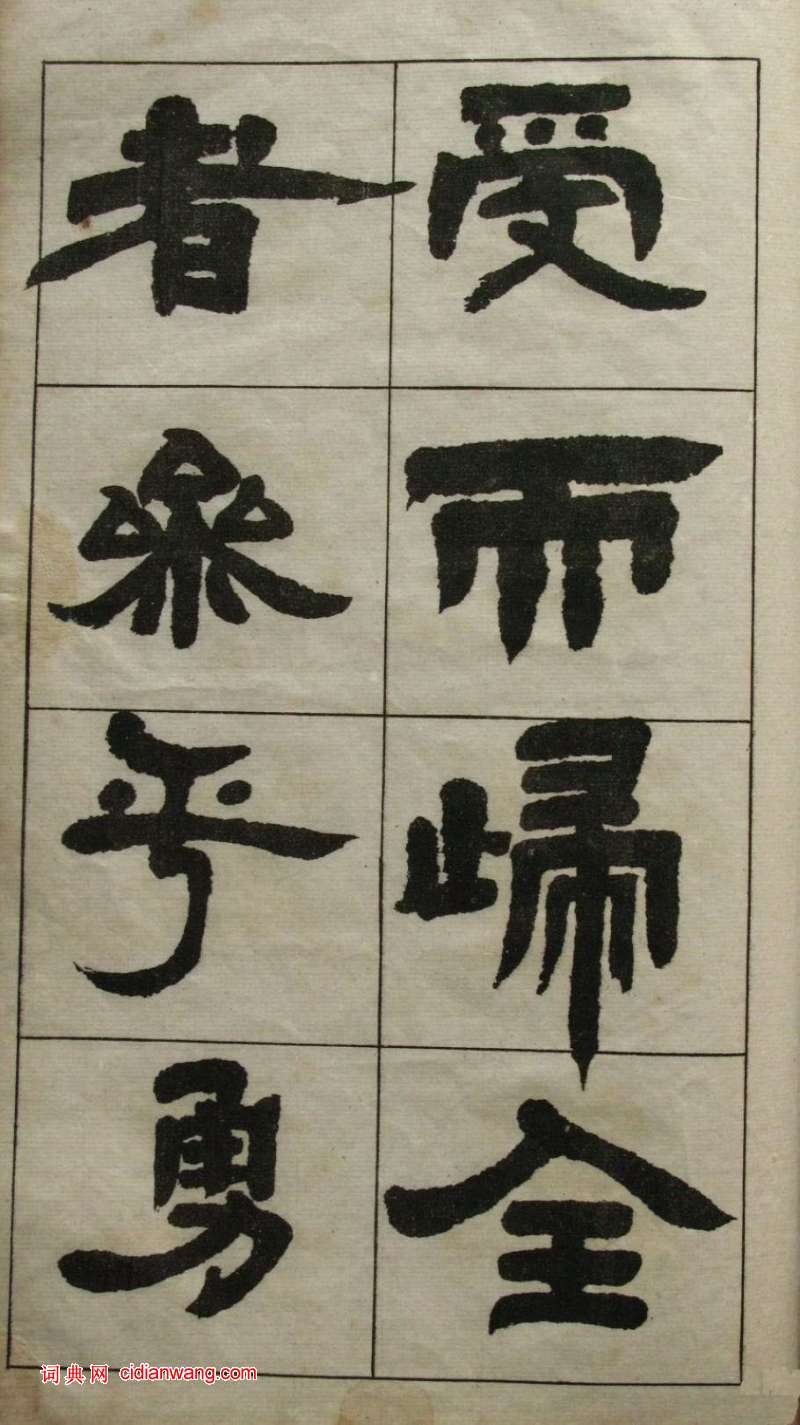 受而歸全
者參乎勇
词典网 cidianwang.com